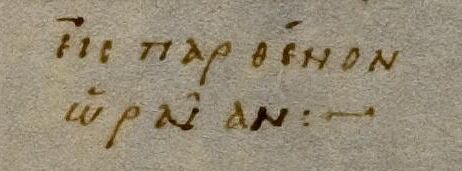 εἰς παρθένον
ὡραῖαν:—